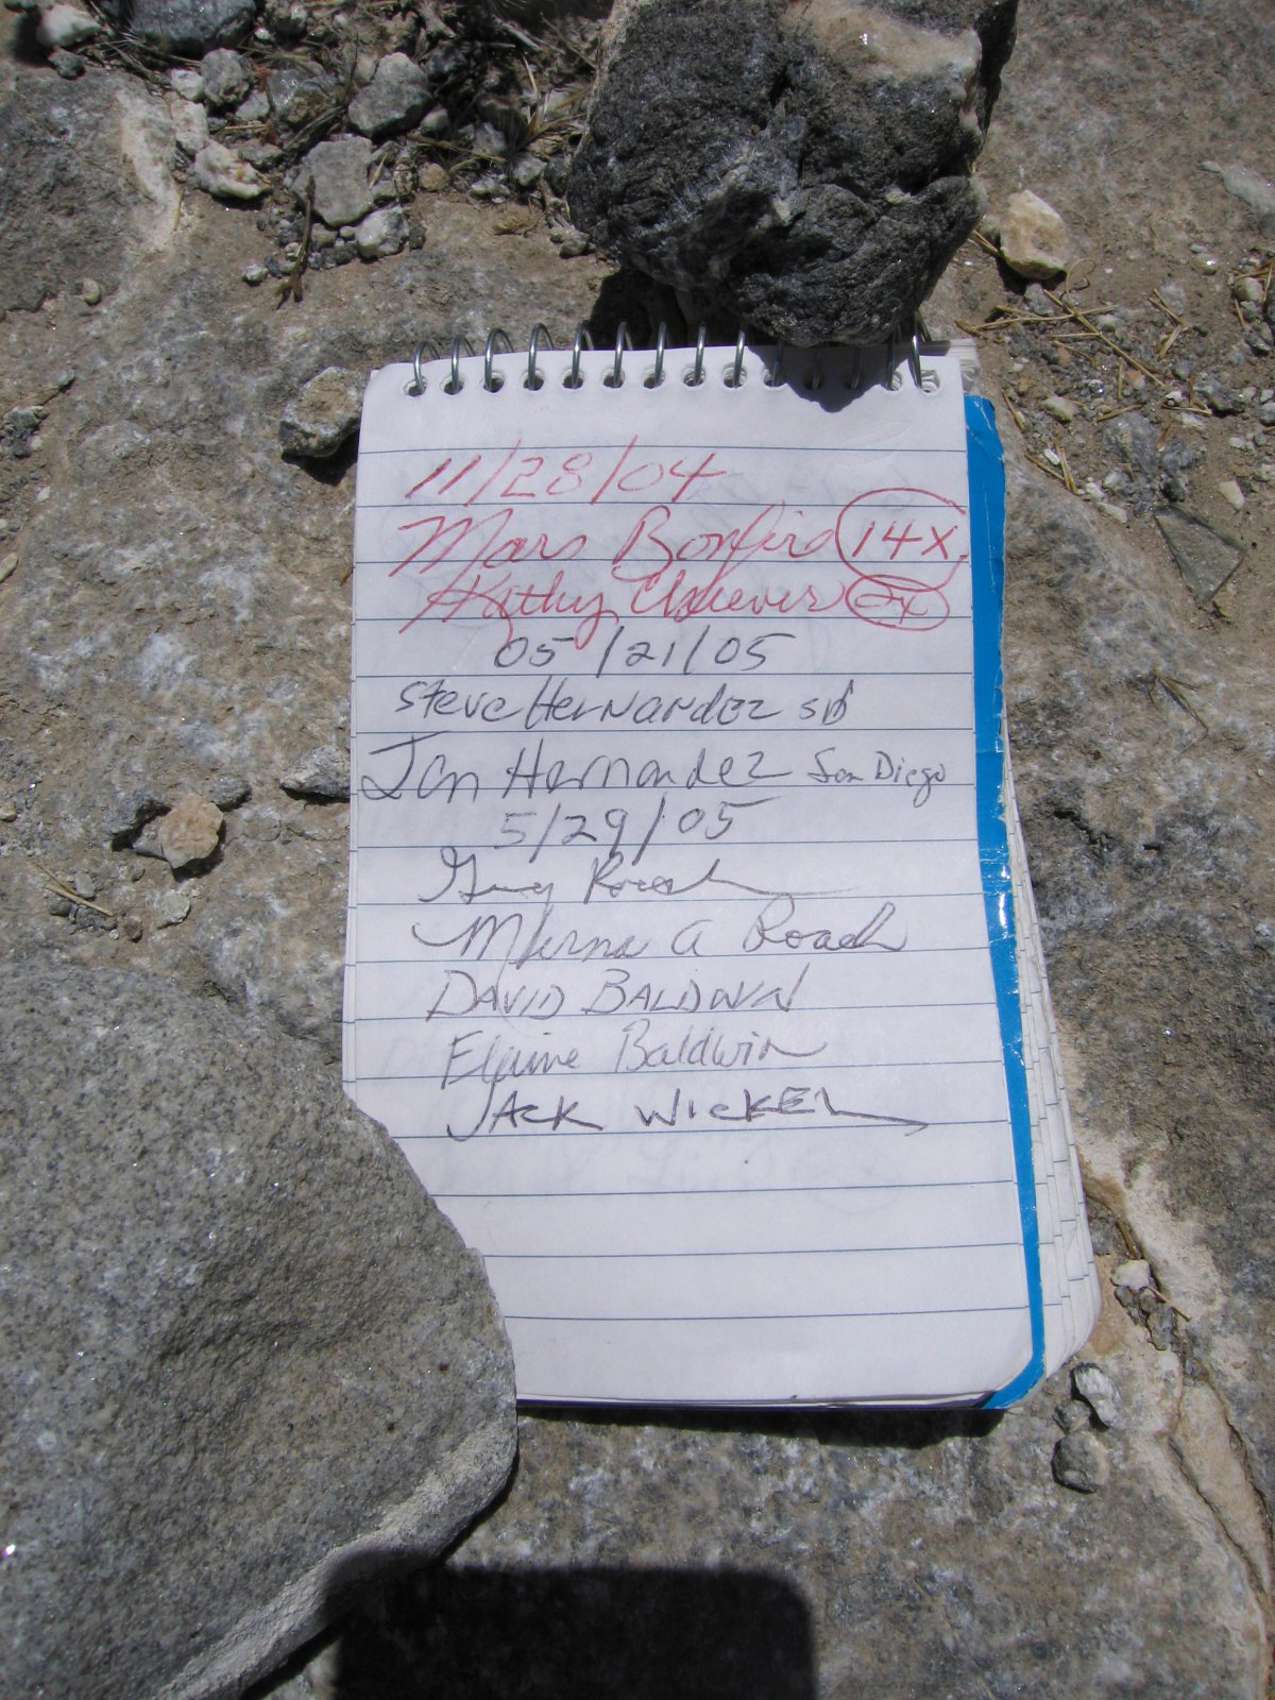 11/28/04
Mars Bonfire 14X
Kathy 2X
05/21/05
Steve Hernandez SD
Jon Hernandez San Diego
5/29/05
Guy Roach
Myrna A Roach
DAVID BALDWIN
Elaine Baldwin
JACK WICKEL